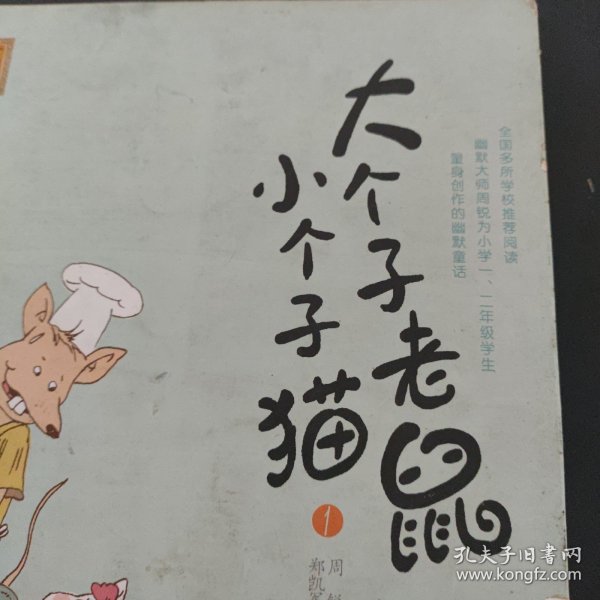 全国多所学校推荐阅读
幽默大师周锐为小学一、二年级学生
量身创作的幽默童话
大个子老鼠
小个子猫
1
周
郑凯
孔夫子旧书网
www.kongfz.com